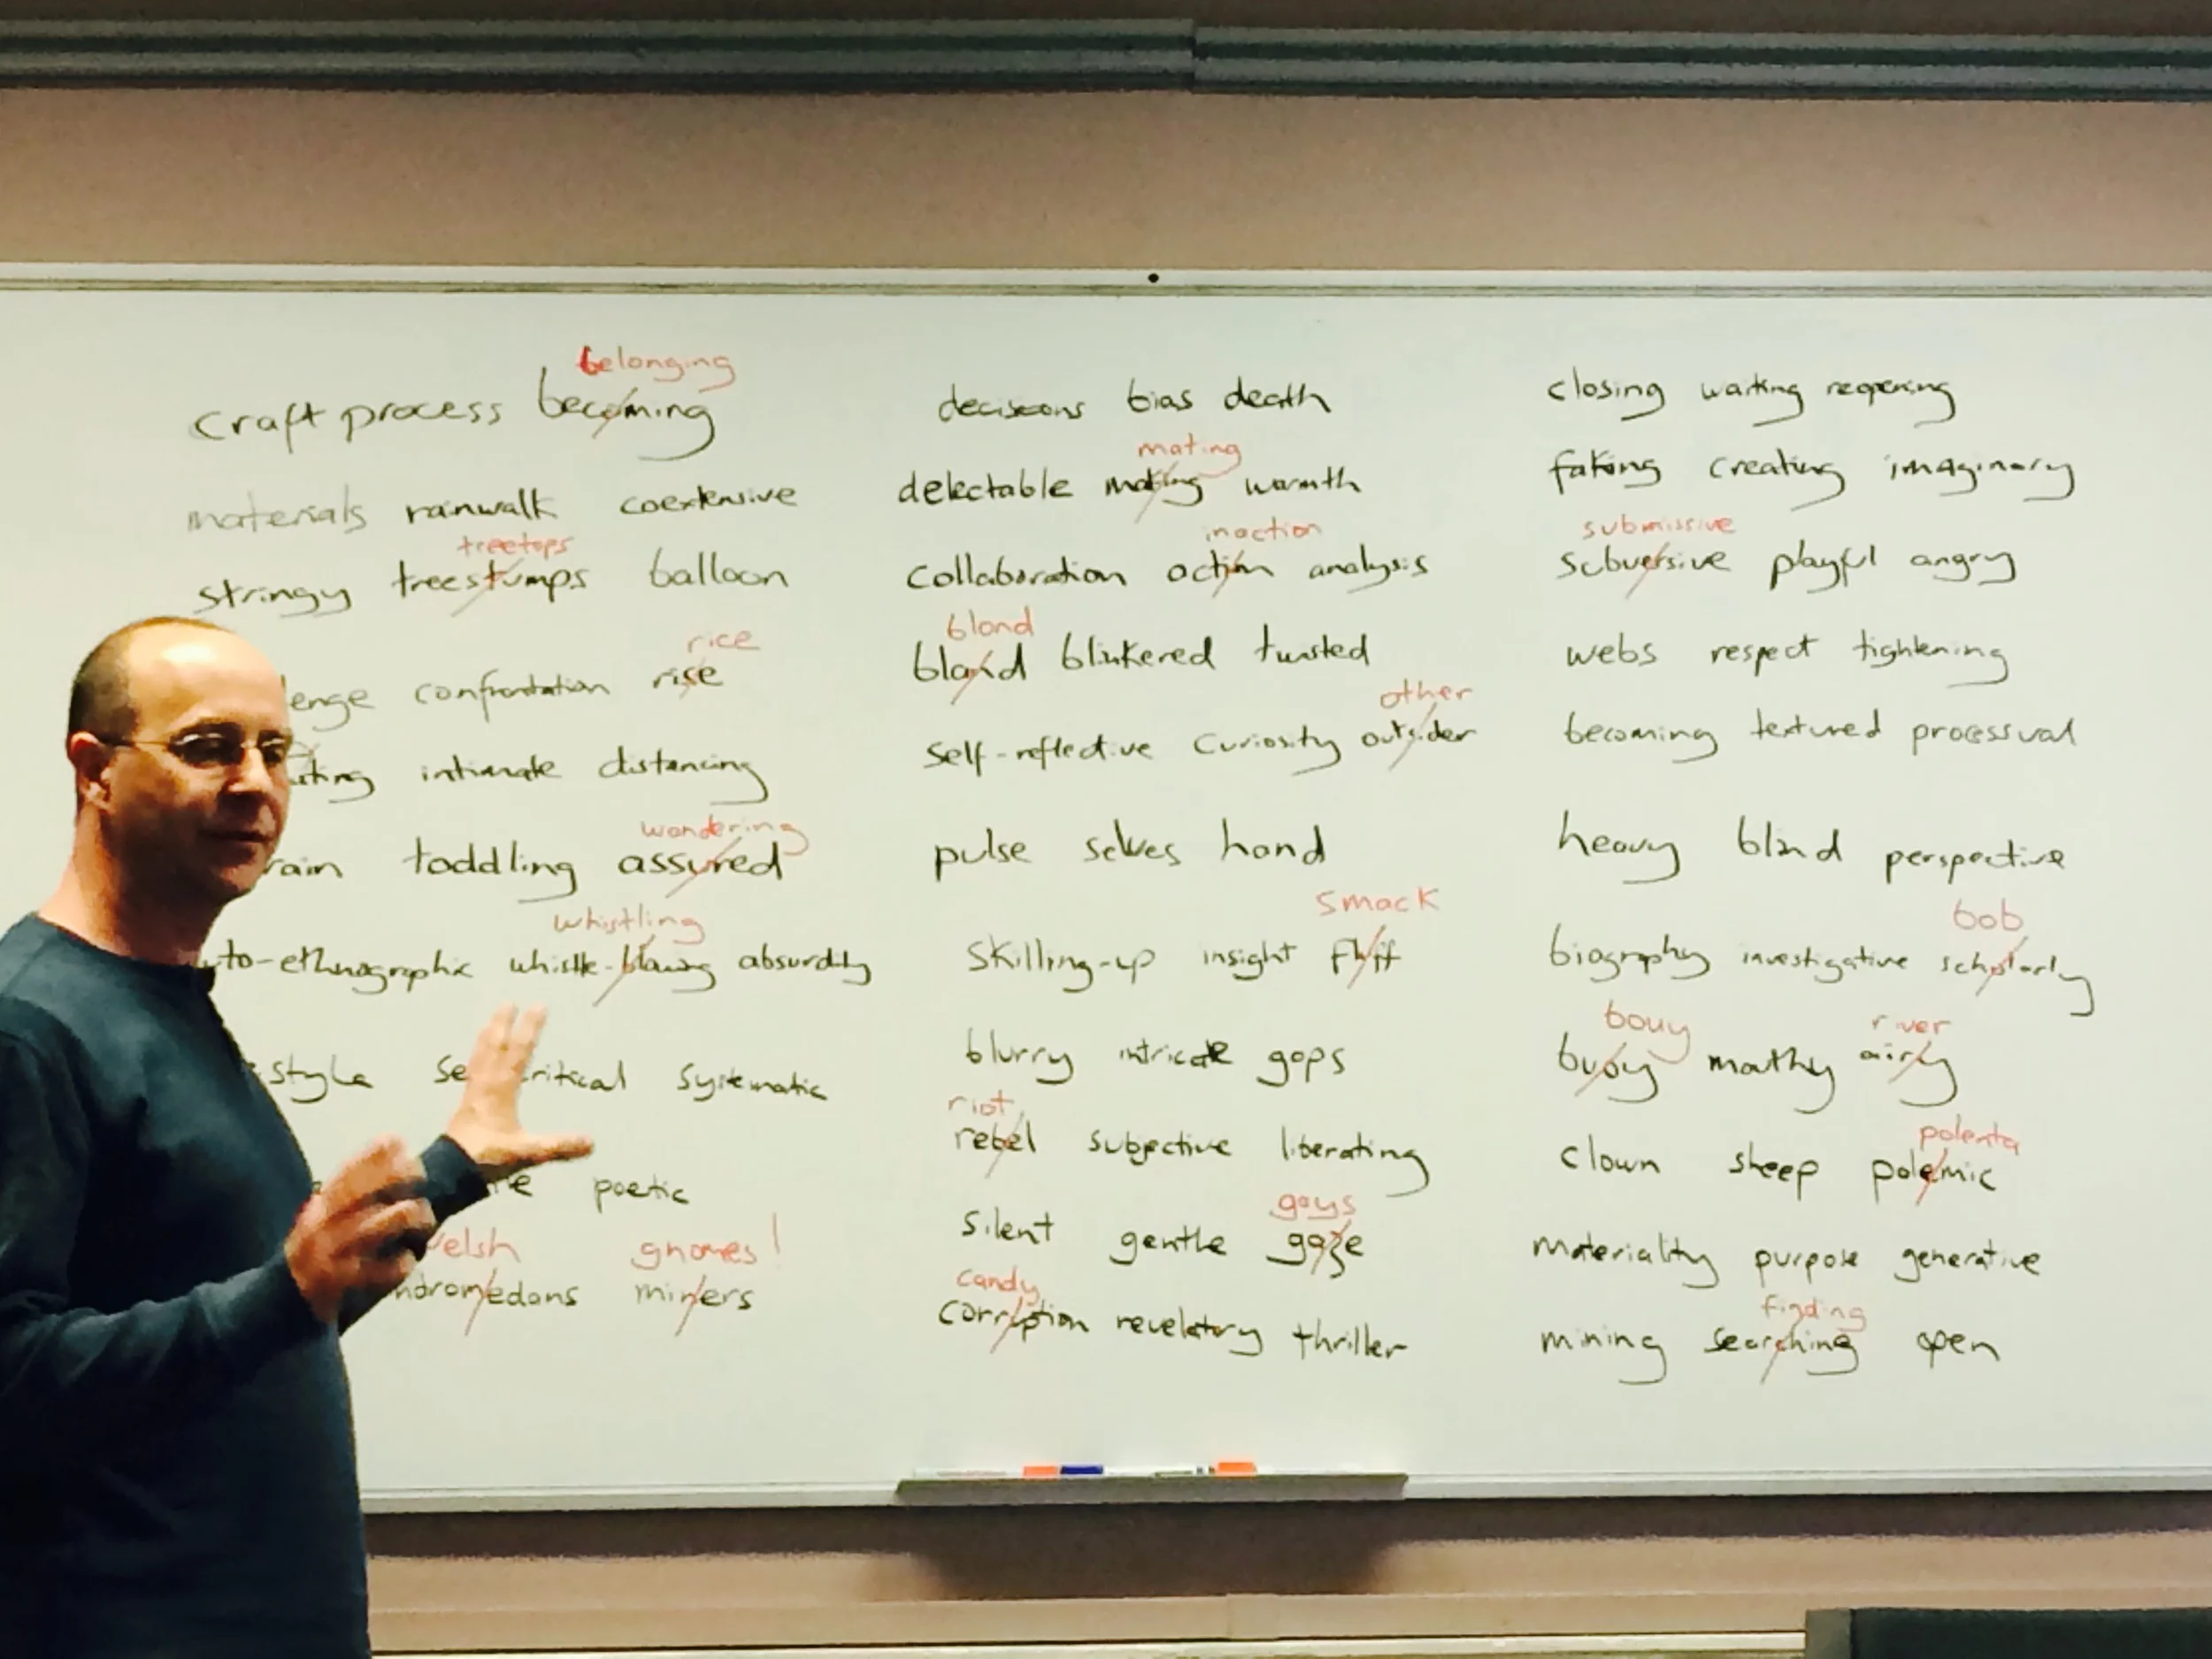 belonging
craft process becoming
materials rainwalk coextensive
treetops
stringy treestumps balloon
rice
enge confrontation rise
intimate distancing
wondering
rain toddling assured
whistling
to-ethnographic whistle-blowing absurdity
style critical systematic
poetic
elsh gnomes!
ndromedans miners
decisions bias death
mating
delectable making warmth
inaction
collaboration action analysis
blond
bland blinkered twisted
other
self-reflective curiosity outsider
pulse selves hand
smack
skilling-up insight fluff
blurry intricate gaps
riot
rebel subjective liberating
gays
silent gentle gaze
candy
corruption revelatory thriller
closing waiting reopening
faking creating imaginary
submissive
subversive playful angry
webs respect tightening
becoming textured processual
heavy blind perspective
bob
biography investigative scholarly
bouy river
buoy mouthy airy
polenta
clown sheep polemic
materiality purpose generative
finding
mining searching open